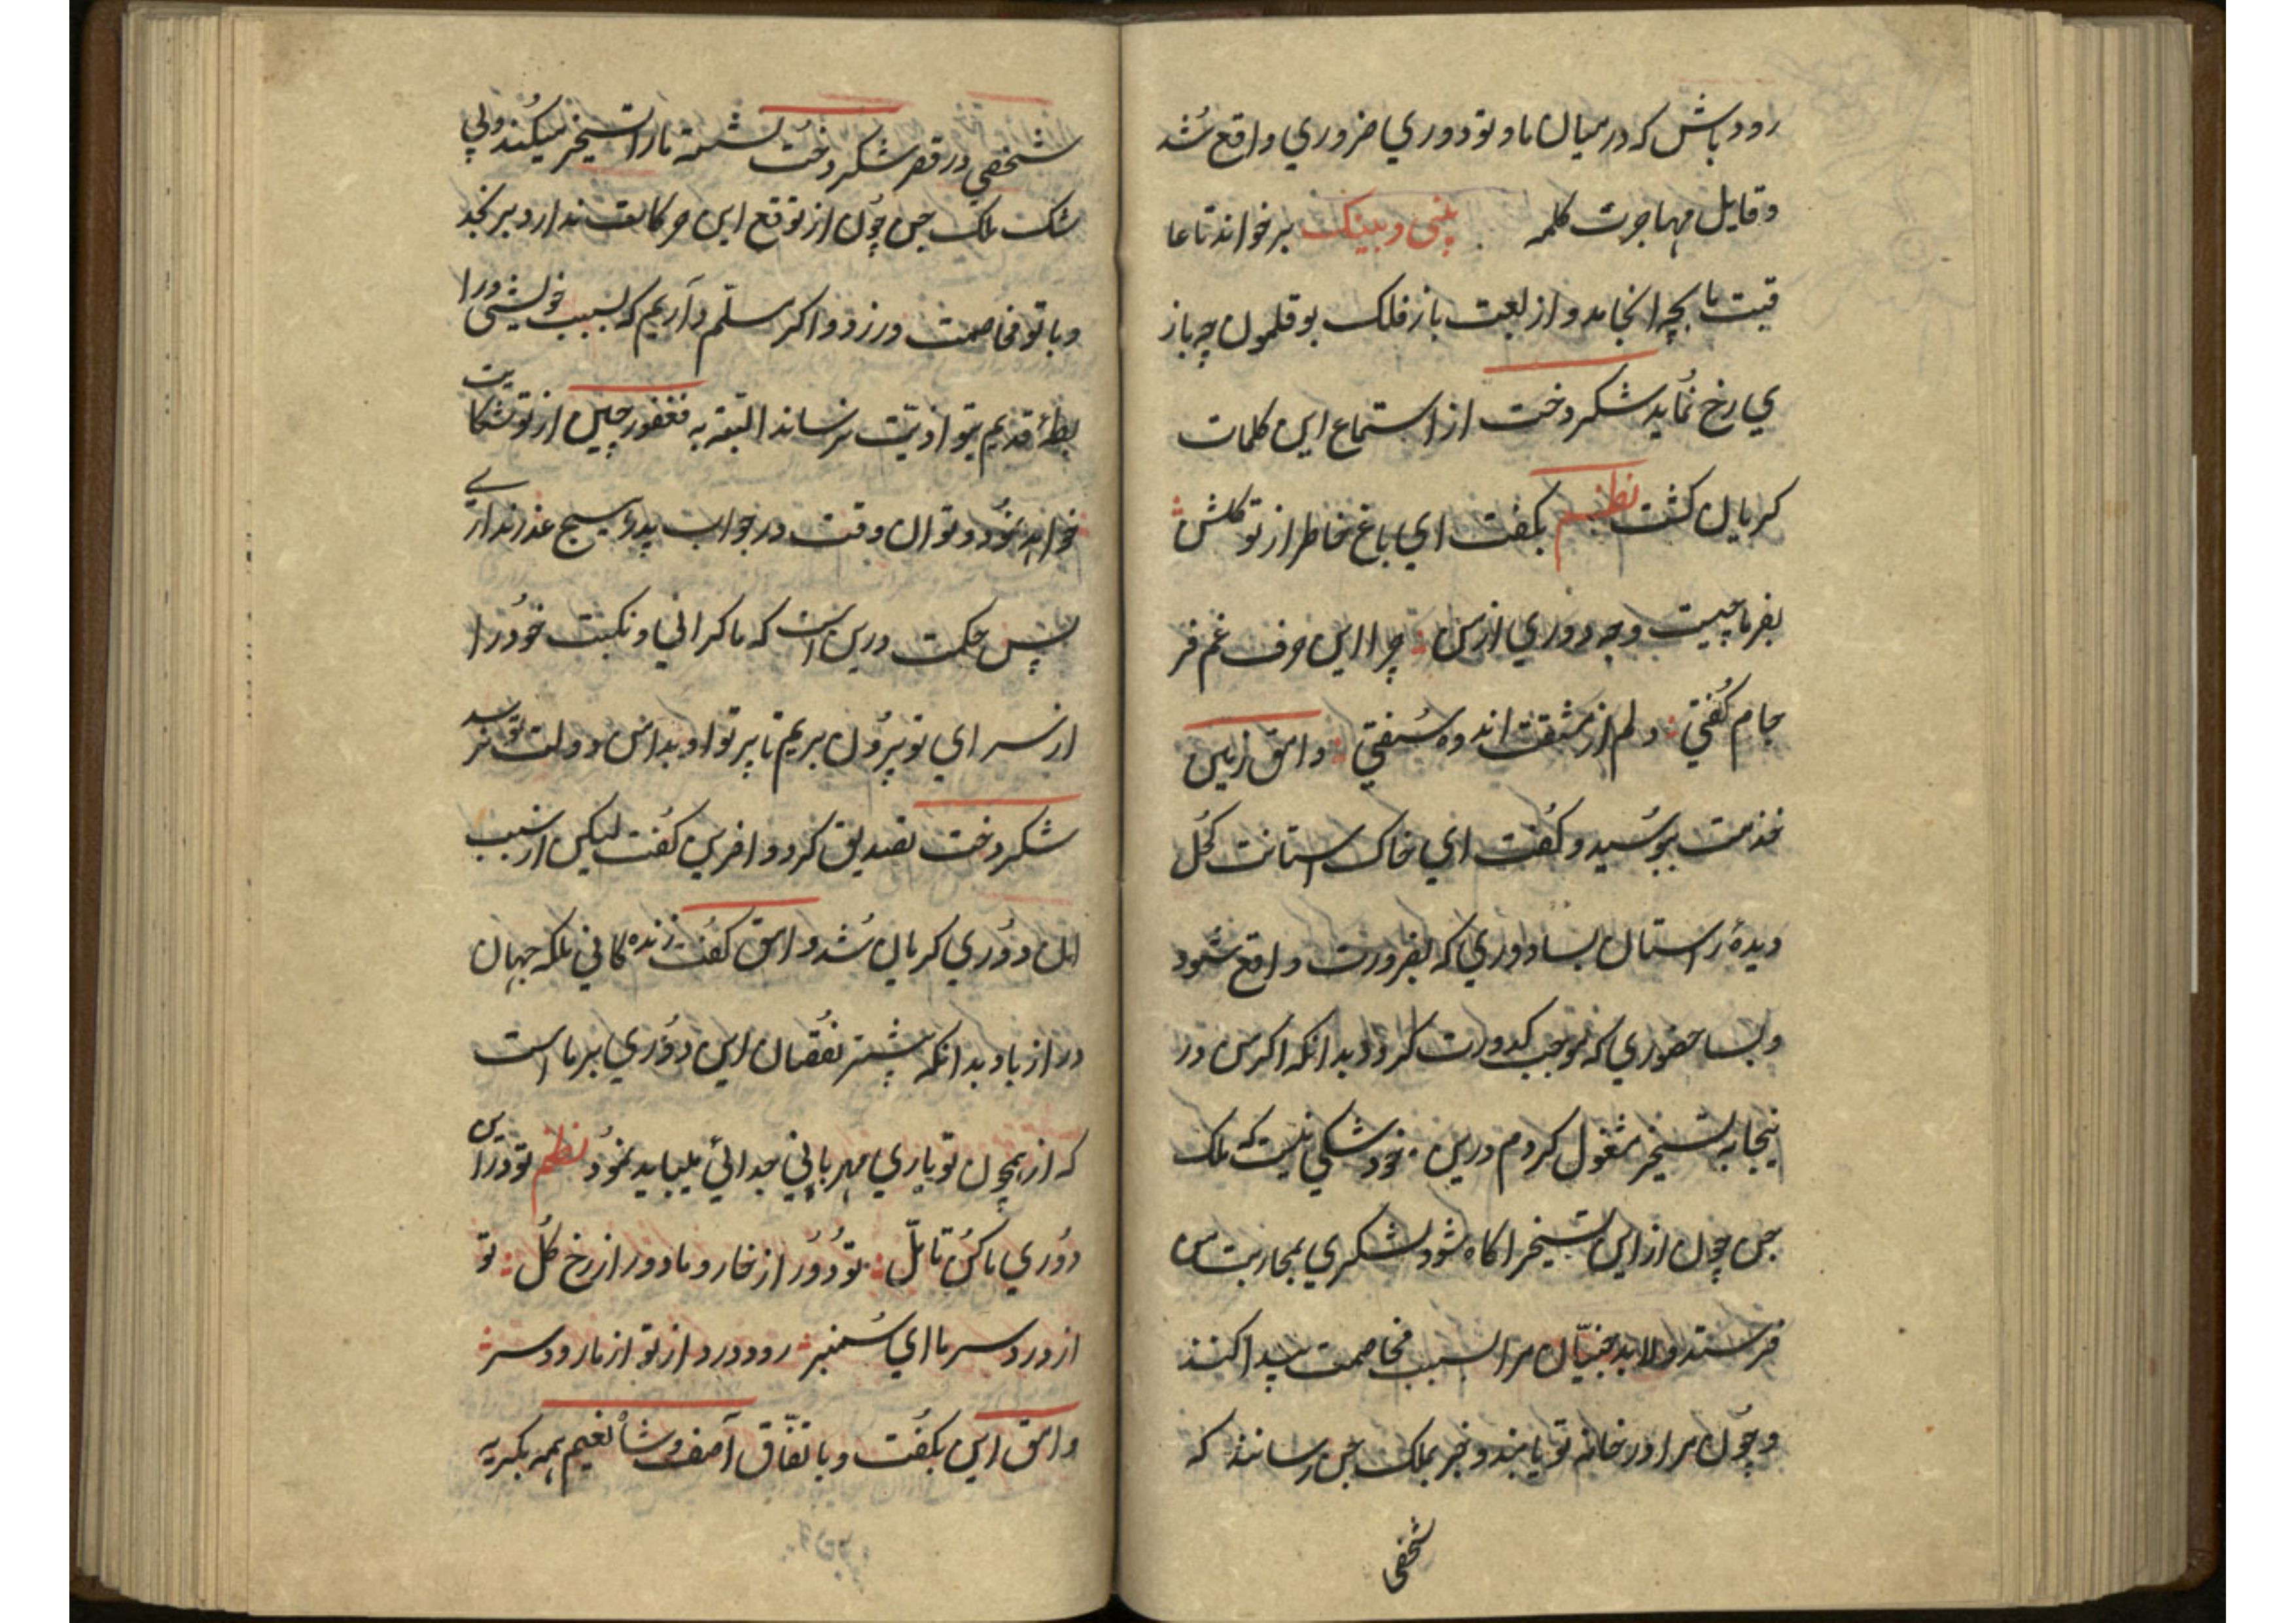 رود باش که در میان ما و تو دوري ضروري واقع شد
و قایل مهاجرت کلمه بینی و بینک برخواند تا عا
قبت ما بچه انجامد و از لعبت باز فلک بوقلمون چه باز
ي رخ نماید شکردخت از استماع این کلمات
کریان کشت نظم بکفت اي باغ خاطر از تو کلشن
بفرما چیست وجه دوري از من چرا این حرف غم فر
جام کفتي دلم از مثقب اندوه سفتي وامق زمین
خدمت ببوسید و کفت اي خاک استانت کحل
دیدۀ راستان بسا دوري که بضرورت واقع شود
و بسا حضوري که موجب کدورت کردد بدانکه اکر من در
ینجا به تسخیر مشغول کردم درین خود شکي نیست که ملک
جن چون از این تسخیر اکاه شود لشکري بمحاربت من
فرستد و لابد جنیان مرا سبب مخاصمت پیدا کنند
و چون مرا در خانه تو یابند و خبر بملک جن رسانند که
شخصي
شخصي در قصر شکردخت نشسته ما را تسخیر میکند و بي
شک ملک جن چون از توقع این حرکات ندارد برنجد
و با تو مخاصمت ورزد و اکر مسلم داریم که بسبب خویشي و را
بطۀ قدیم بتو اذیت نرساند البته به فغفور چین از تو شکایت
خواهد نمود و تو ان وقت در جواب پدر هیچ عذر نداري
پس حکمت درین است که ما کراني و نکبت خود را
از سراي تو بیرون بریم تا پرتو او بدامن دولت تو نرسد
شکردخت تصدیق کرد و افرین کفت لیکن از سبب
الم دوري کریان شد وامق کفت زنده کاني ملکه جهان
دراز باد بدانکه بیشتر نقصان این دوري بر ما است
که از همچون تو یاري مهرباني جدائي میباید نمود نظم تو در این
دوري ما کن تامل تو دور از خار و ما دور از رخ کل تو
از درد سر ما اي سمنبر رود درد از تو از ما رود سر
وامق این بکفت و با تفاق آصف و شاه نعیم همه بکریه